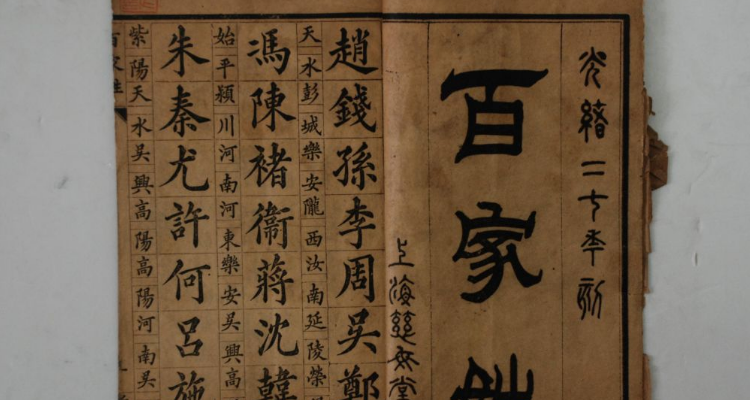 光緒二七年刻
百家
上海慈母堂
趙錢孫李周吳鄭
天水彭城樂安隴西汝南延陵榮
馮陳褚衞蔣沈韓
始平潁川河南河東樂安吳興高
朱秦尤許何呂施
紫陽天水吳興高陽高陽河南吳